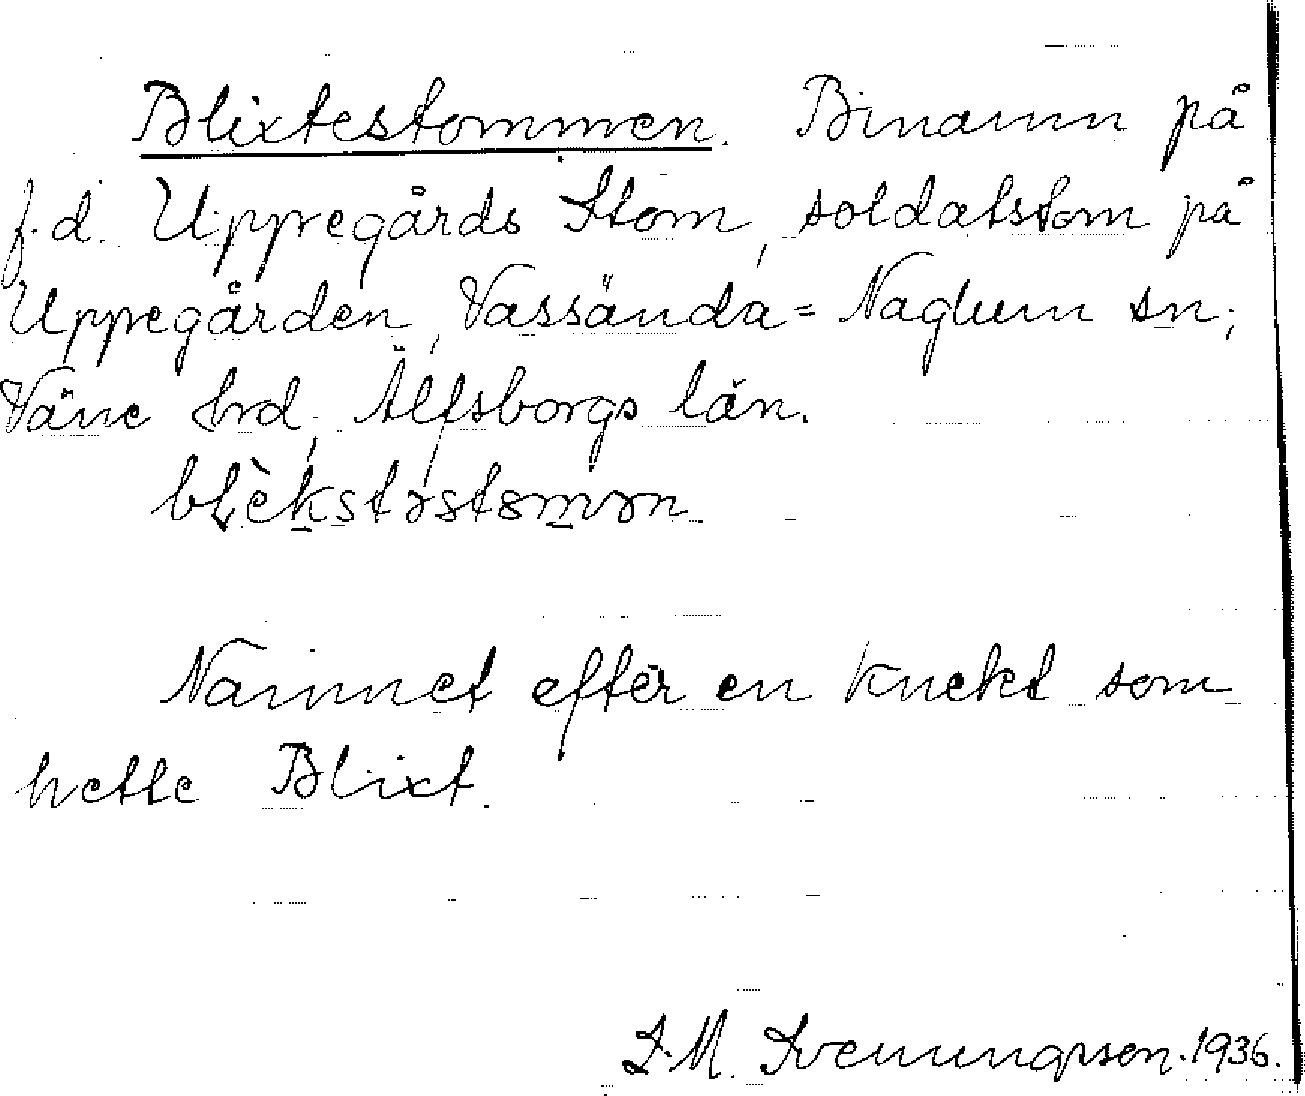 Blixtestommen. Binamn på
f.d. Uppegårds Stom, soldatstom på
Uppegården, Vassända=Naglum sn;
Väne hrd, Älfsborgs län.
blèkstəstɷmən
Namnet efter en knekt som
hette Blixt.
S.M. Svenungsson. 1936.